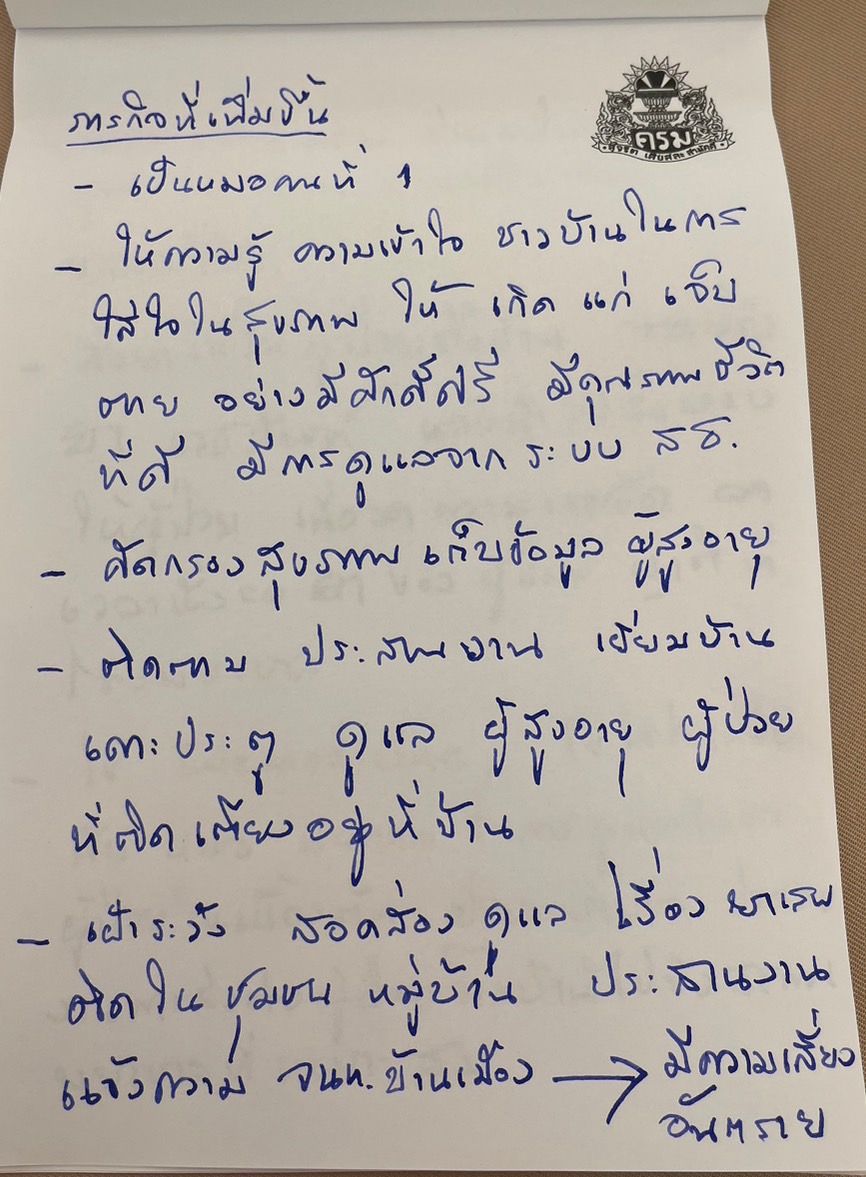 ภารกิจที่เพิ่มขึ้น
ครม
เสียสละ สามัคคี
- เป็นหมอคนที่ 1
- ให้ความรู้ ความเข้าใจ ชาวบ้านในการ
ใส่ใจในสุขภาพ ให้ เกิด แก่ เจ็บ
ตาย อย่างมีศักดิ์ศรี มีคุณภาพชีวิต
ที่ดี มีการดูแลจาก ระบบ สธ.
- คัดกรองสุขภาพ เก็บข้อมูล ผู้สูงอายุ
- ติดตาม ประสานงาน เยี่ยมบ้าน
เคาะประตู ดูแล ผู้สูงอายุ ผู้ป่วย
ที่ติดเตียงอยู่ที่บ้าน
- เฝ้าระวัง สอดส่อง ดูแล เรื่อง ยาเสพ
ติดใน ชุมชน หมู่บ้าน ประสานงาน
แจ้งความ จนท. บ้านเมือง → มีความเสี่ยง
อันตราย